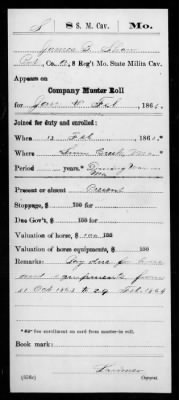 S 8 S. M. Cav. Mo.
James
Co. 8 Reg't Mo. State Militia Cav.
Appears on
Company Muster Roll
for Jan & Feb, 186
Joined for duty and enrolled:
When 13 Feb, 186 *
Where Linn Creek Mo
Period years. During war
Present or absent Present
Stoppage, $ 100 for
Due Gov't, $ 100 for
Valuation of horse, $ 100
Valuation of horse equipments, $ 100
Remarks: Pay due for horse
and equipments from
31 Oct 1863 to 29 Feb 1864
*See enrollment on card from muster-in roll.
Book mark:
(358c) Copyist.